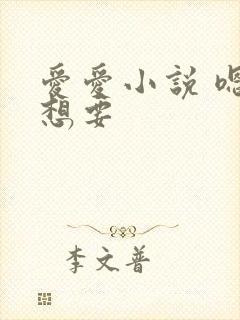 愛愛小說 嗯
想要
李文普